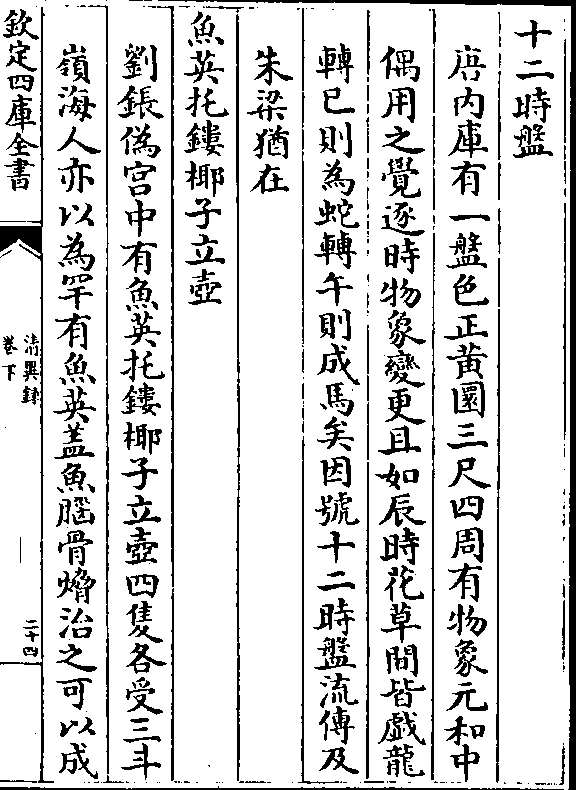 十二時盤
唐内庫有一盤色正黄圜三尺四周有物象元和中
偶用之覺逐時物象變更且如辰時花草間皆戲龍
轉巳則為蛇轉午則成馬矣因號十二時盤流傳及
朱梁猶在
魚英托鏤椰子立壺
劉鋹偽宫中有魚英托鏤椰子立壺四隻各受三斗
嶺海人亦以為罕有魚英葢魚腦骨熁治之可以成
欽定四庫全書
清異録
卷下
二十四